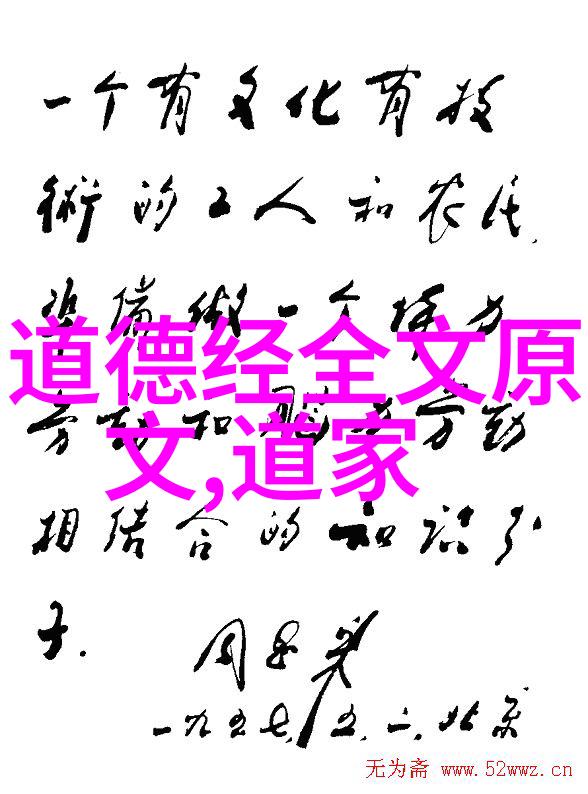 一个有文化有技
術的工人和农民,
準備做一个体力
道德经全文原
劳动和脑力劳动
文,道家
相结合的知识分
子.
周恩来
一九五七.五.二.北京
无为斋 www.52wwz.cn